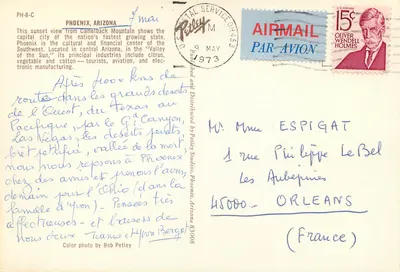 PH-8-C
PHOENIX, ARIZONA
7 mai
This sunset view from Camelback Mountain shows the
capital city of the nation's fastest growing state.
Phoenix is the cultural and financial center of the
Southwest. Located in central Arizona, in the "Valley
of the Sun," its principal industries include citrus,
vegetable and cotton — tourists, aviation, and elec-
tronic manufacturing.
Après 4000 kms de
route dans les grands déserts
de l'Ouest, du Texas au
Pacifique, par le Gd Canyon,
Las Vegas, les déserts peints,
forêt pétrifiée, vallée de la mort,
nous nous reposons à Phoenix
chez des amis et prenons l'avion
demain pour l'Ohio (dans la
famille d'Yvon) - Pensées très
affectueuses - et baisers de
nous deux
Yvon Berger
Color photo by Bob Petley
Petley
and Distributed by Petley Studios, Phoenix, Arizona 85008
POSTAL SERVICE
PM
9 MAY
1973
AIRMAIL
PAR AVION
15¢
OLIVER
WENDELL
HOLMES
Mr Mme ESPIGAT
1 rue Philippe Le Bel
Les Aubépines
45000 - ORLEANS
(France)